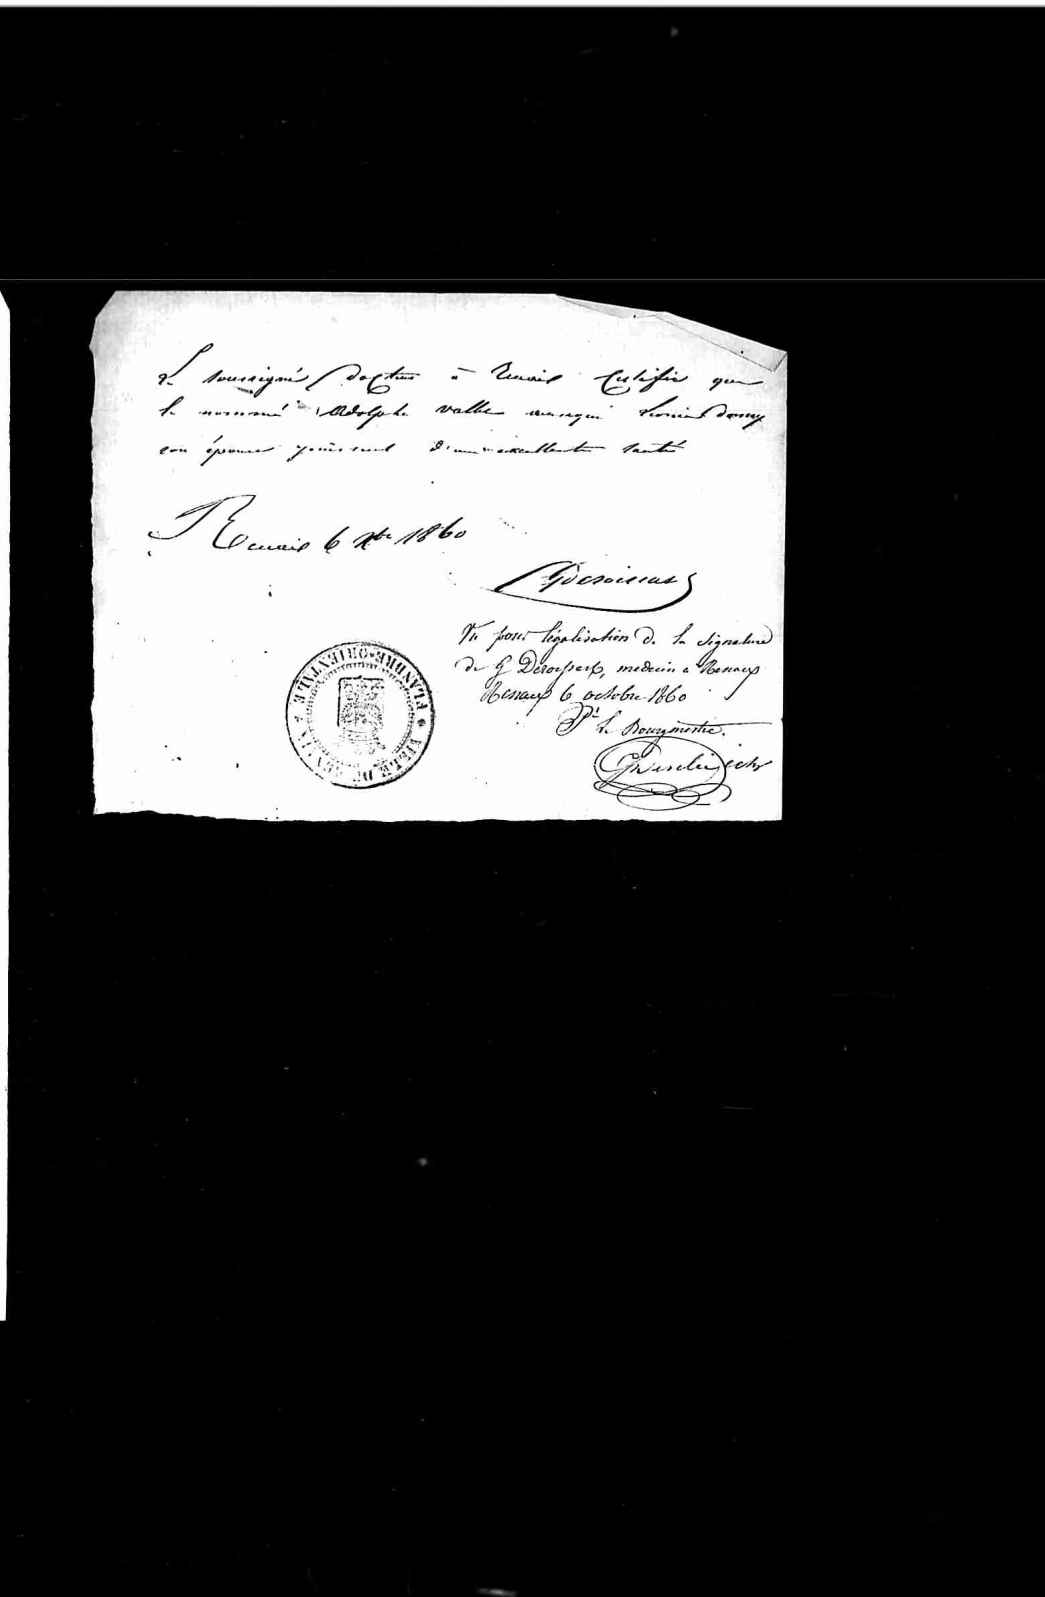 Le soussigné docteur à Renaix Certifie que
le nommé Adolphe vallez ainsi que
son épouse jouissent d'une excellente santé
Renaix 6 Xbre 1860
Vu pour légalisation de la signature
de G Deroissart, medecin a Renaix
Renaix 6 octobre 1860
Pr le Bourgmestre.
FLANDRE-ORIENTALE * VILLE DE RENAIX